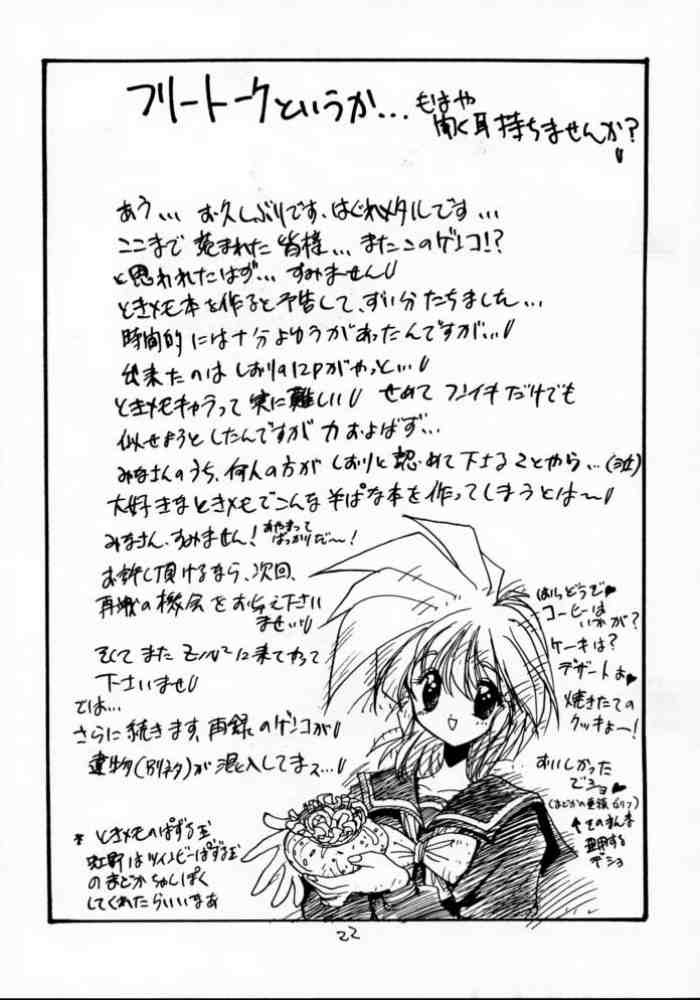 フリートークというか...
もはや
聞く耳持ちませんか?
あう... お久しぶりです、はぐれメタルです...
ここまで 読まれた 皆様... またこのゲンコ!?
と思われたはず... すみません
ときメモ本を作ると予告して、ずい分たちました...
時間的には十分よゆうがあったんですが...
出来たのは しおりの12Pがやっと...
ときメモキャラって 実に難しい せめて フンイキだけでも
似せようとしたんですが 力およばず...
みなさんのうち、何人の方が しおりと認めて下さることやら...
大好きなときメモでこんな そばな本を作ってしまうとは〜
みなさん、すみません!
あやまって
ばっかりだ〜!
お許し頂けるなら、次回、
再戦の機会を お与え下さい
ませ...
そしてまた
に来てやって
下さいませ
では...
さらに続きます、再録のゲンコが
遺物(別ネタ)が 混入してまス...
はらどうで♥
コーヒーは
いかが?
ケーキは?
デザートよ♥
焼きたての
クッキよー!
すいしかった
でショ♥
そのまんま
デショ
* ときメモのぱずる玉
虹野はツインビーぱずる玉
のまどかちゅしぱく
してくれたらいいなあ
22